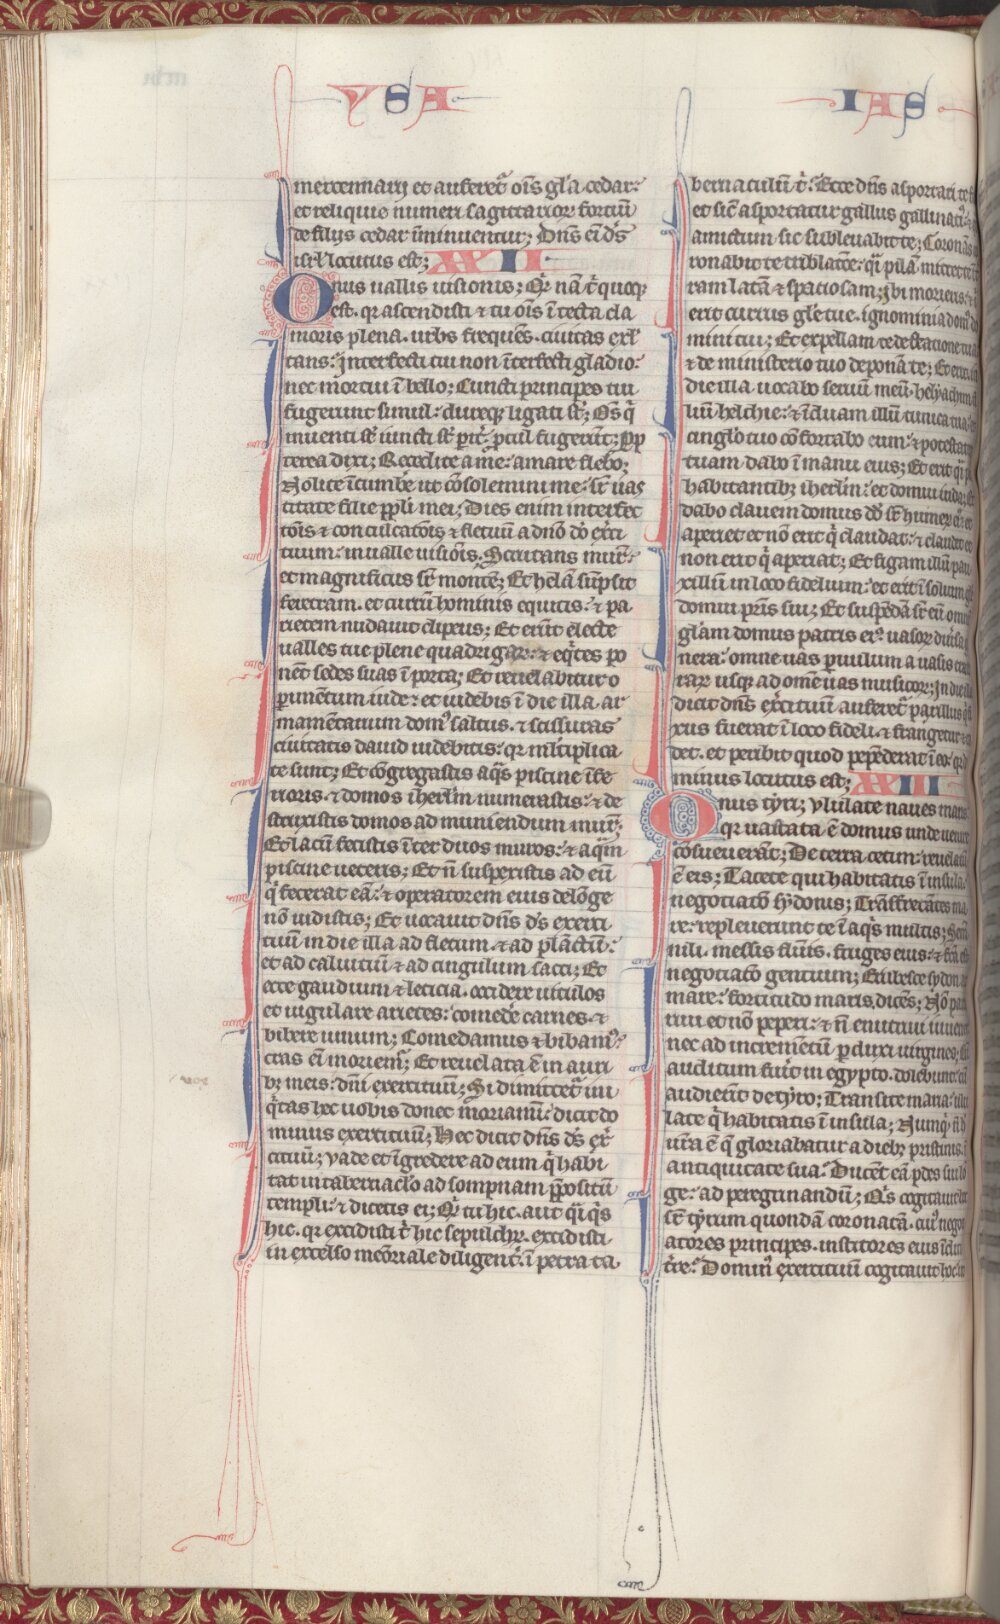 YSA
IAS
mercennarij et auferet᷑ oīs gl̄a cedar:
et reliquie numeri sagittarioꝝ fortiū
de filijs cedar īminuentur; Dn̄s eī ds̄
isrl̄ locutus est; XXII
Onus uallis uisionis; Qͥd nā tͥ quoqꝫ
est. qꝛ ascendisti ⁊ tu oīs ī tecta cla
moris plena. urbs frequēs. ciuitas exl̄
tans: Interfecti tui non īterfecti gladio:
nec mortui ī bello; Cuncti principes tui
fugerunt simul: dureqꝫ ligati st̄; Om̄s qͥ
inuenti st̄ iuncti st̄ pit᷑. ꝓcul fugerūt; Ꝓp
terea dixi; Recedite a me: amare flebo;
Nolite īcumbe᷑ ut cōsolemini me: sr̄ uas
titate filie ppl̄i mei; Dies enim interfec
tōis ⁊ conculcatōis ⁊ fletuū a dn̄o dō ex̄ci
tuum: in ualle uisiōis. Scrutans murū:
et magnificus sr̄ montē; Et helā sūpsit
feretram. et currū hominis equitis: ⁊ pa
rietem nudauit clipeus; Et erūt electe
ualles tue plene quadrigaꝝ: ⁊ eqͥtes po
nēt sedes suas ī porta; Et reuelabitur o
ꝑimētum iude: et uidebis ī die illa ar
mamētarium domꝰ saltus. ⁊ scissuras
ciuitatis dauid uidebitis: qꝛ ml̄tiplica
te sunt; Et cōgregastis aqͣs piscine īfe
rioris. ⁊ domos ihrl̄m numerastis: ⁊ de
struxistis domos ad muniendum murū;
Et lacū fecistis īter duos muros: ⁊ aqͣm
piscine ueteris; Et n̄ suspexistis ad eū
qͥ fecerat eā: ⁊ operatorem eius de lōge
nō uidistis; Et uocauit dn̄s ds̄ exerci
tuū in die illa ad fletum. ⁊ ad planctū:
et ad caluitiū ⁊ ad cingulum sacci; Et
ecce gaudium ⁊ leticia. occidere uitulos
et iugulare arietes: comede᷑ carnes. ⁊
bibere uinum; Comedamus ⁊ bibamꝰ:
cras eī moriemᷣ; Et reuelata ē in auri
bꝫ meis: dn̄i exercituū; Si dimittet᷑ ini
qͥtas hec uobis donec moriamī: dicit do
minus exercituū; Hec dicit dn̄s ds̄ ex̄
cituū; Vade et īgredere ad eum qͥ habi
tat in tabernac̄lo ad sompnam p̄positū
templi: ⁊ dicetis ei; Qͥd tu hic. aut qͣsi qͥs
hic. qꝛ excidisti tͥ hic sepulchꝝ. excidisti
in excelso memōriale diligent᷑. ī petra ta
bernaculū tͥ: Ecce dn̄s asportari te
et sic̄ asportatur gallus gallinatꝰ:
amictum sic subleuabit te; Coronās
ronabit te tribulatōe: qͣsi pilā mittet te
ram latā ⁊ spatiosam; Ibi morieris: ⁊ i
erit currus gl̄e tue. ignominia domꝰ do
mini tui; Et expellam te de statione tua
⁊ de ministerio tuo deponā te; Et erit in
die illa uocabo seruū meū helyachim
liū helchie: ⁊ īduam illū tunica tua:
cingl̄o tuo cōfortabo eum: ⁊ potestatem
tuam dabo ī manu eius; Et erit qͣsi p̄
habitantibꝫ ihrl̄m: et domui iude;
dabo clauem domus dd̄ sr̄ humeꝝ eiꝰ: et
aperiet et nō erit qͥ claudat: ⁊ claudet et
non erit qͥ aperiat; Et figam illū pa
xillū in loco fidelium: et erit ī solium gl̄
domui pr̄is sui; Et suspēdā sr̄ eū omnē
gl̄am domus patris eiꝰ. uasoꝝ diu̾sa
nera: omne uas paruulum a uasis crate
raꝝ usqꝫ ad omē uas musicoꝝ; In die illa
dicit dn̄s ex̄cituū auferet᷑ paxillus qͥ fi
xus fuerat ī loco fideli. ⁊ frangetur ⁊ ca
det. et peribit quod pepēderat ī eo: qꝛ do
minus locutus est; XXIII
Onus tyri; Vlulate naues maris:
qꝛ uastata ē domus unde uenire
cōsueuerāt; De terra cetim: reuelatū
ē eis; Tacete qui habitatis ī insula:
negotiatō sydonis; Trāsfretātes ma
re: repleuerunt te ī aqͥs multis; Sem̄
nili. messis flum̄is. fruges eius: ⁊ fc̄a est
negotiatō gentium; Erubesce sydon
mare: fortitudo maris. dicēs; Nō par
turiui et nō peperi: ⁊ n̄ enutriui iuuenes
nec ad incremētū ꝑduxi uirgines; Cū
auditum fuīt in egypto. dolebunt cū
audierīt de tyro; Transite maria: ulu
late qͥ habitatis ī insula; Nunqͥd n̄ h̄
ur̄a ē q̄ gloriabatur a diebꝫ pristinis. ī
antiquitate sua: Ducēt eā pedes sui lō
ge: ad peregrinandū; Qͥs cogitauit hoc
sr̄ tyrum quondā coronatā. cuiꝰ nego
atores principes. institores eius īcliti
t̄re: Dominꝰ exercituū cogitauit hoc